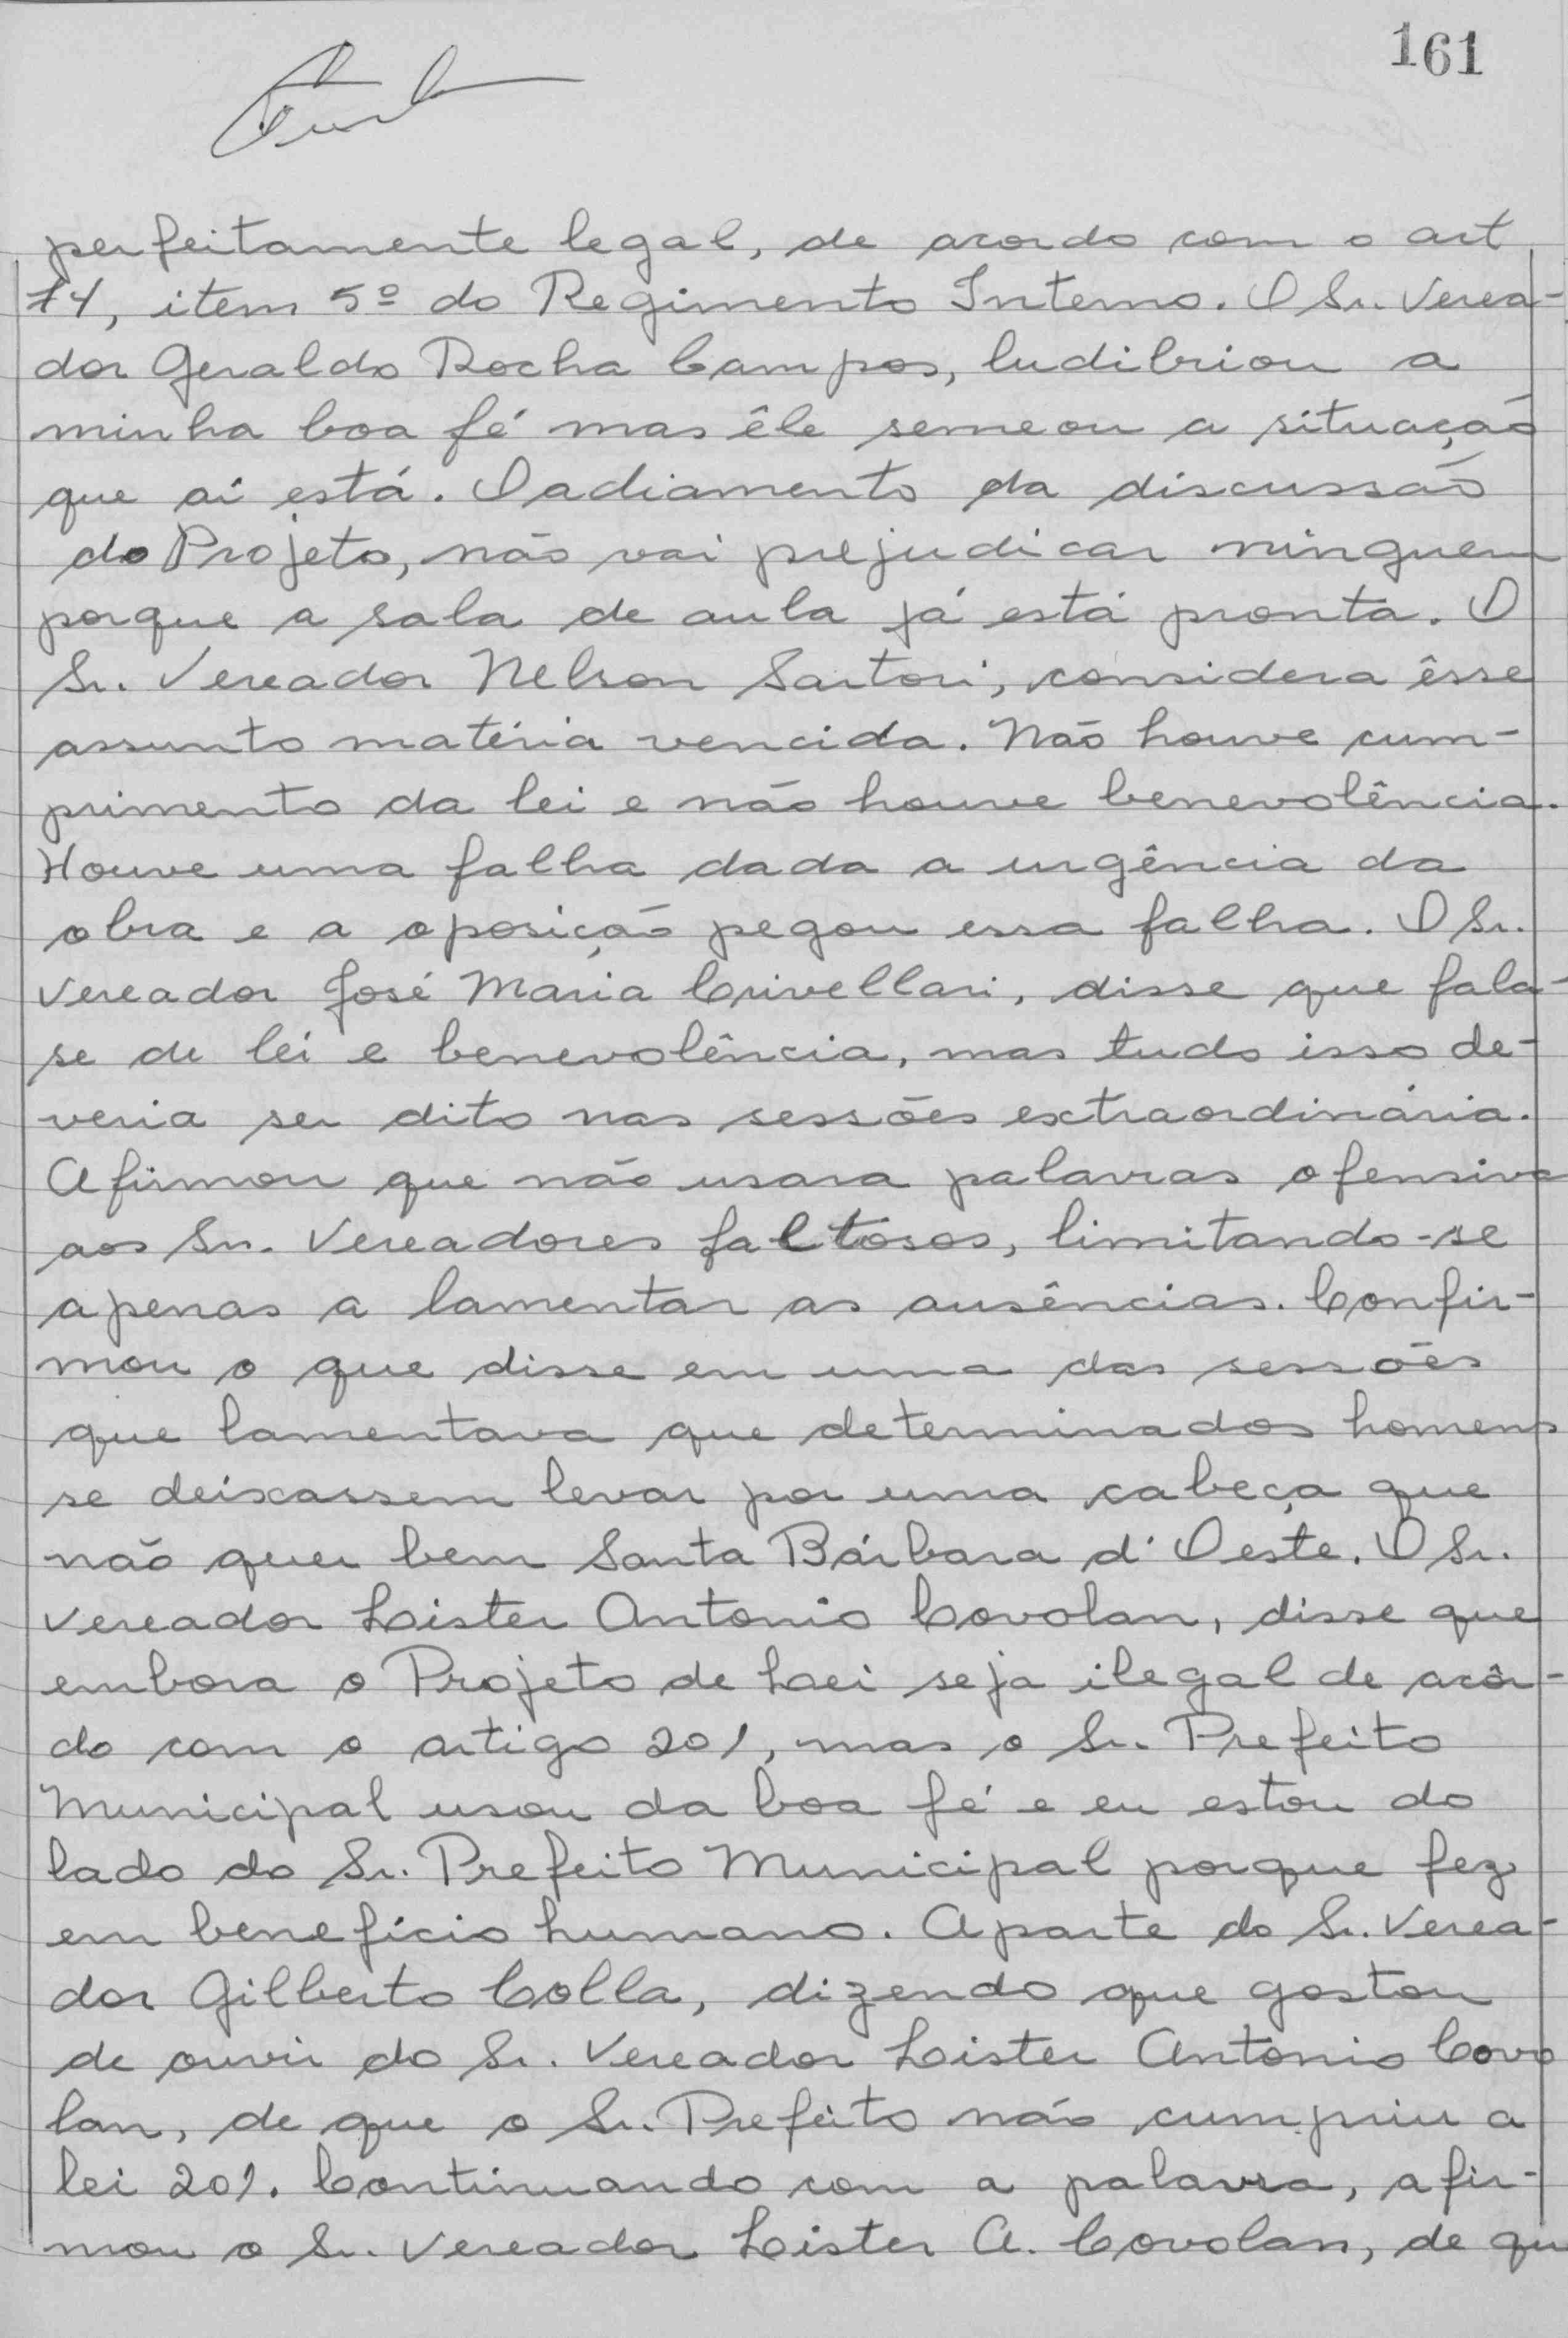 161
perfeitamente legal, de acordo com o art
74, item 5º do Regimento Interno. O Sr. Verea-
dor Geraldo Rocha Campos, ludibriou a
minha boa fé mas êle semeou a situação
que aí está. O adiamento da discussão
do Projeto, não vai prejudicar ninguem
porque a sala de aula já está pronta. O
Sr. Vereador Nelson Sartori, considera êsse
assunto matéria vencida. Não houve cum-
primento da lei e não houve benevolência.
Houve uma falha dada a urgência da
obra e a oposição pegou essa falha. O Sr.
Vereador José Maria Crivellari, disse que fala-
se de lei e benevolência, mas tudo isso de-
veria ser dito nas sessões extraordinária.
Afirmou que não usara palavras ofensiva
aos Srs. Vereadores faltosos, limitando-se
apenas a lamentar as ausências. Confir-
mou o que disse em uma das sessões
que lamentava que determinados homens
se deixassem levar por uma cabeça que
não quer bem Santa Bárbara d'Oeste. O Sr.
Vereador Lister Antonio Covolan, disse que
embora o Projeto de Lei seja ilegal de acôr-
do com o artigo 201, mas o Sr. Prefeito
Municipal usou da boa fé e eu estou do
lado do Sr. Prefeito Municipal porque fez
em benefício humano. Aparte do Sr. Verea-
dor Gilberto Colla, dizendo que gostou
de ouvir do Sr. Vereador Lister Antonio Covo
lan, de que o Sr. Prefeito não cumpriu a
lei 201. Continuando com a palavra, afir-
mou o Sr. Vereador Lister A. Covolan, de qu